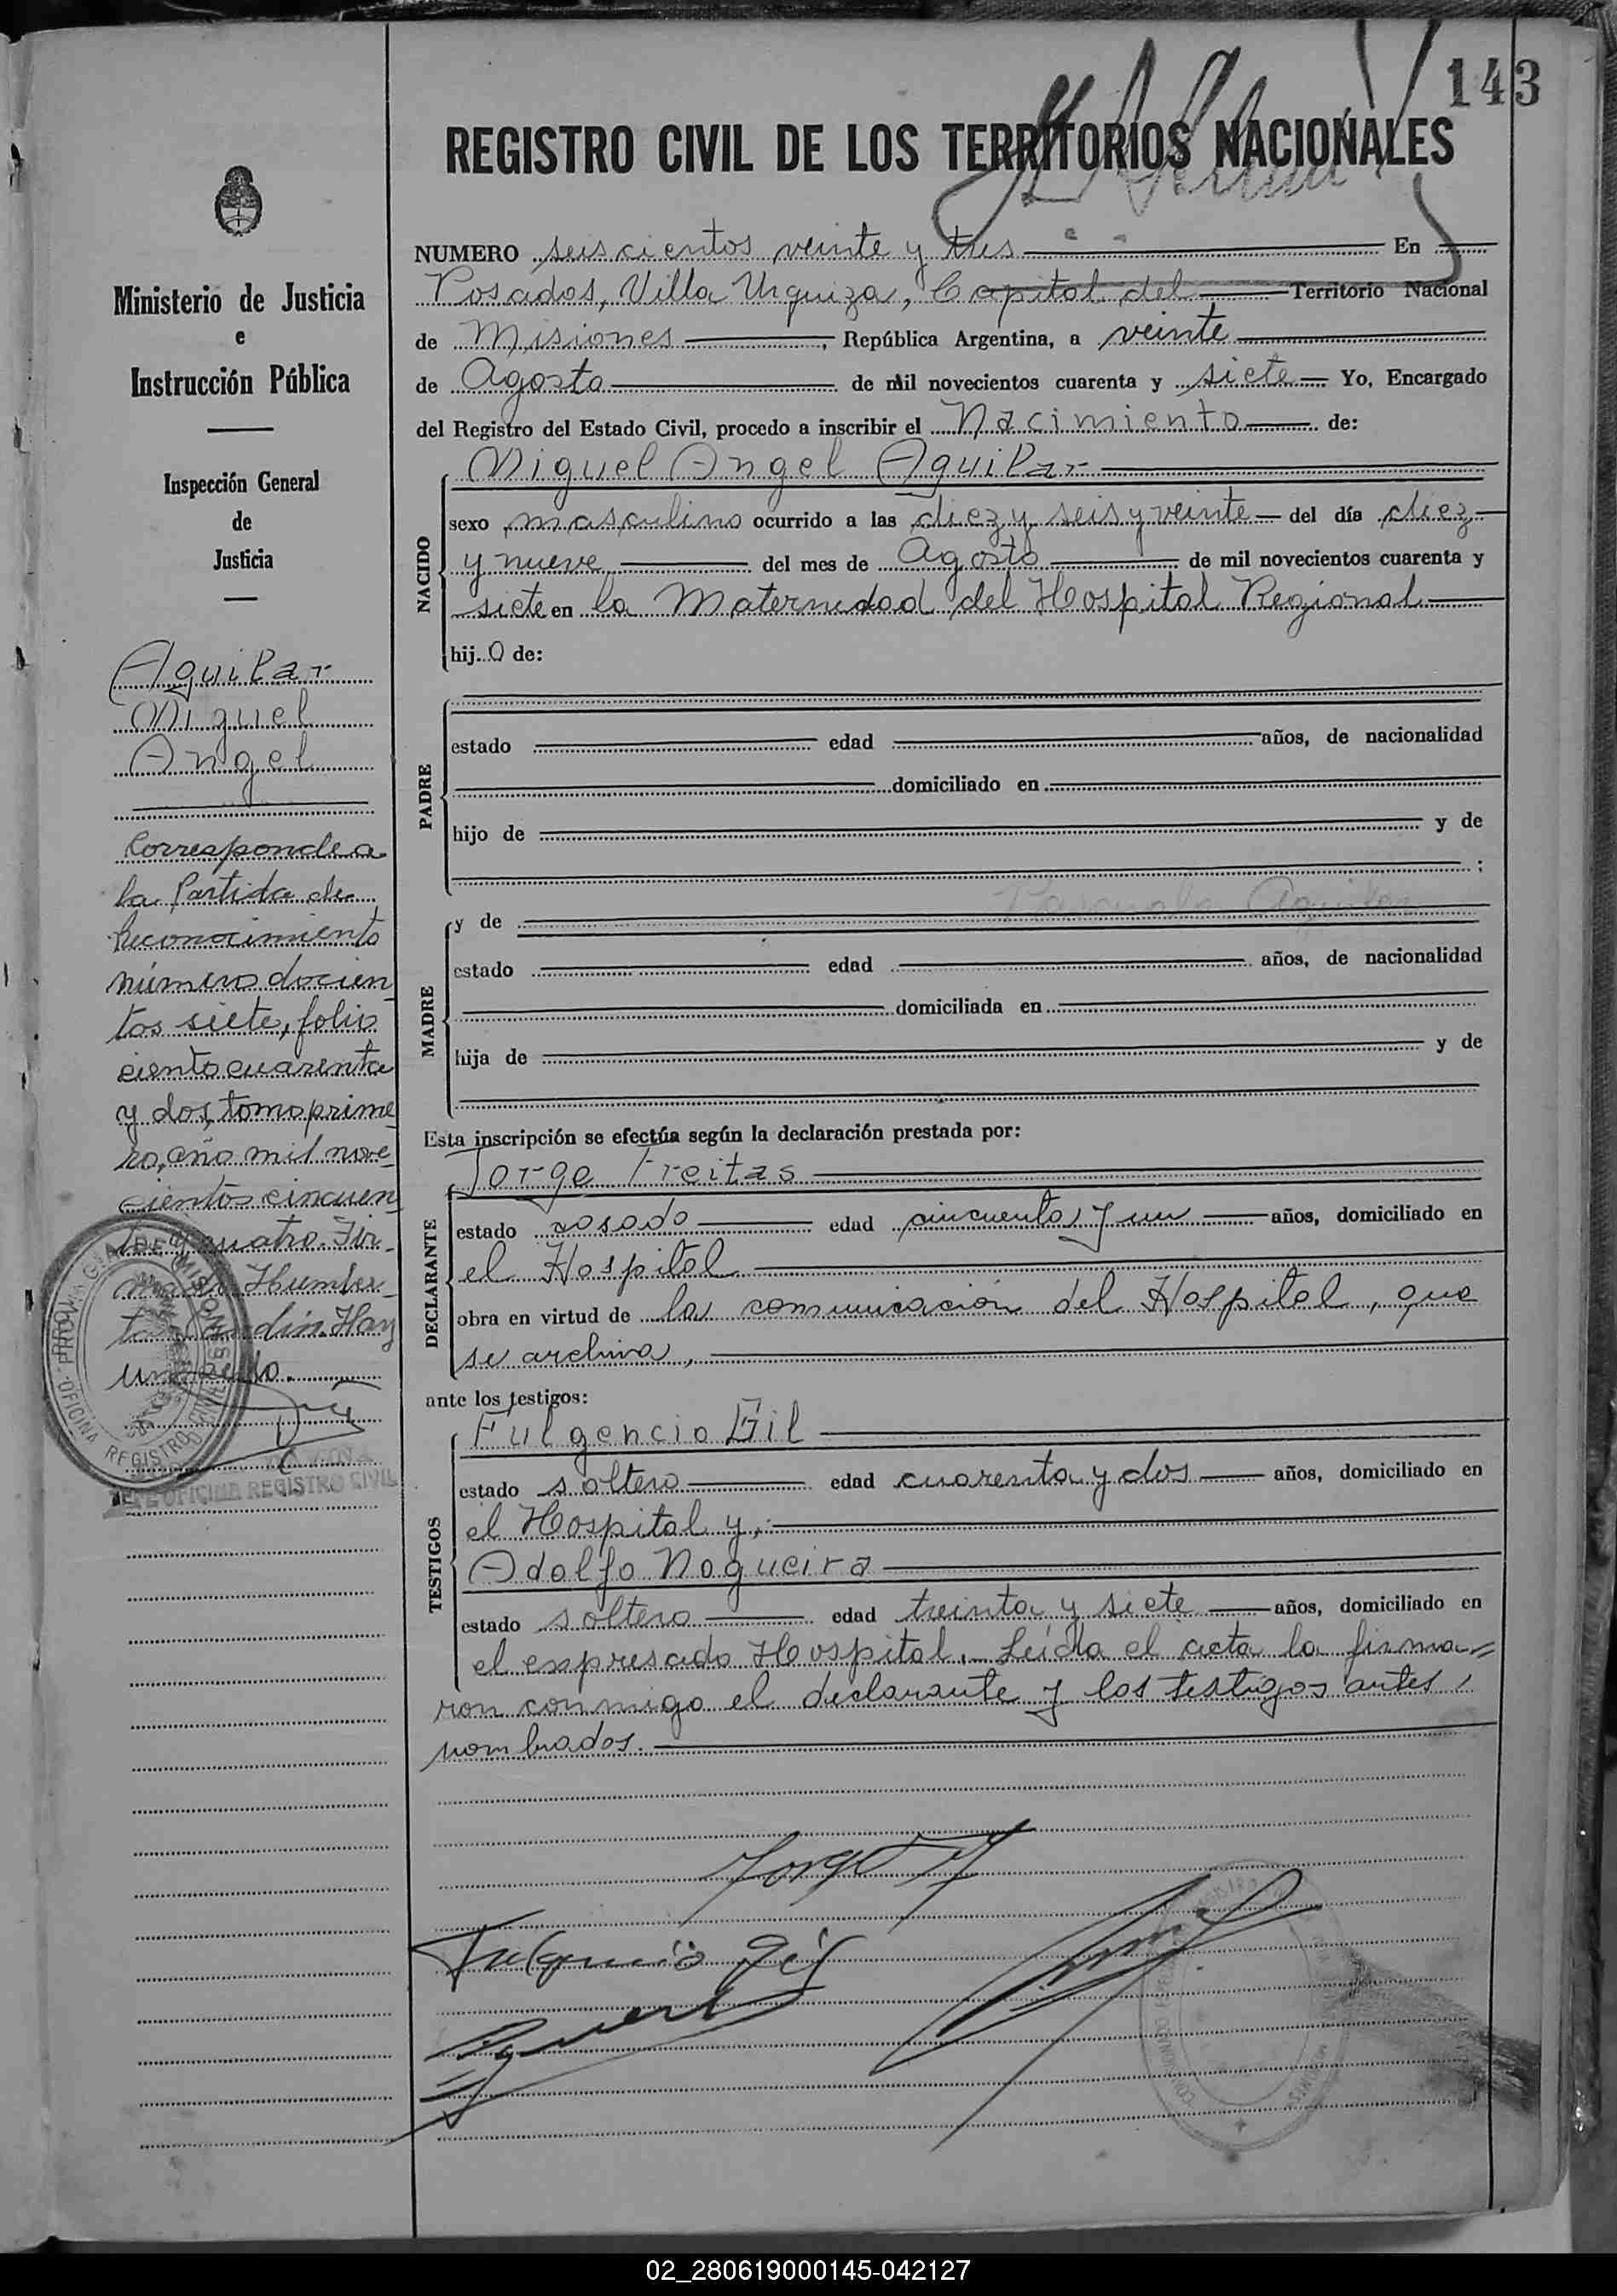 143
REGISTRO CIVIL DE LOS TERRITORIOS NACIONALES
NUMERO seiscientos veinte y tres En
Posadas, Villa Urquiza, Capital del Territorio Nacional
de Misiones, República Argentina, a veinte
de Agosto de mil novecientos cuarenta y siete Yo, Encargado
del Registro del Estado Civil, procedo a inscribir el Nacimiento de:
NACIDO
Miguel Angel Aguilar
sexo masculino ocurrido a las diez y seis y veinte del día diez
y nueve del mes de Agosto de mil novecientos cuarenta y
siete en la Maternidad del Hospital Regional
hijo de:
PADRE
estado edad años, de nacionalidad
domiciliado en
hijo de y de
;
MADRE
y de Aguilar
estado edad años, de nacionalidad
domiciliada en
hija de y de
Esta inscripción se efectúa según la declaración prestada por:
DECLARANTE
Jorge Freitas
estado casado edad cincuenta y un años, domiciliado en
el Hospital
obra en virtud de la comunicación del Hospital, que
se archiva,
ante los testigos:
TESTIGOS
Fulgencio Gil
estado soltero edad cuarenta y dos años, domiciliado en
el Hospital y,
Adolfo Nogueira
estado soltero edad treinta y siete años, domiciliado en
el expresado Hospital. Leída el acta la firma=
ron conmigo el declarante y los testigos antes
nombrados.
Jorge
Fulgencio Gil
Ministerio de Justicia
e
Instrucción Pública
Inspección General
de
Justicia
Aguilar
Miguel
Angel
Corresponde a
la Partida de
Reconocimiento
número docien
tos siete, folio
ciento cuarenta
y dos, tomo prime
ro, año mil nove
cientos cincuen
ta y cuatro. Fir-
mado Humber
to
Un sello.
PROVINCIA DE MISIONES
OFICINA REGISTRO CIVIL
JEFE OFICINA REGISTRO CIVIL
02_280619000145-042127